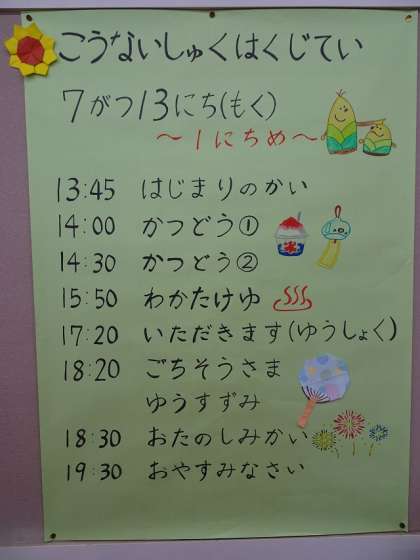 こうないしゅくはくじてい
7がつ13にち(もく)
～1にちめ～
13:45 はじまりのかい
14:00 かつどう①
14:30 かつどう②
15:50 わかたけゆ
17:20 いただきます(ゆうしょく)
18:20 ごちそうさま
ゆうすずみ
18:30 おたのしみかい
19:30 おやすみなさい